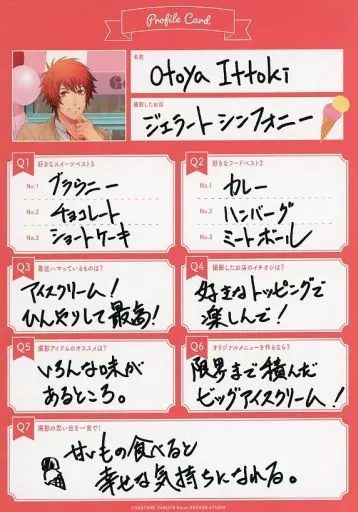 Profile Card
名前
Otoya Ittoki
撮影したお店
ジェラートシンフォニー
Q1 好きなスイーツベスト3
No.1 ブラウニー
No.2 チョコレート
No.3 ショートケーキ
Q2 好きなフードベスト3
No.1 カレー
No.2 ハンバーグ
No.3 ミートボール
Q3 最近ハマっているものは?
アイスクリーム!
ひんやりして最高!
Q4 撮影したお店のイチオシは?
好きなトッピングで
楽しんで!
Q5 撮影アイテムのオススメは?
いろんな味が
あるところ。
Q6 オリジナルメニューを作るなら?
限界まで積んだ
ビッグアイスクリーム!
Q7 撮影の思い出を一言で!
甘いもの食べると
幸せな気持ちになれる。